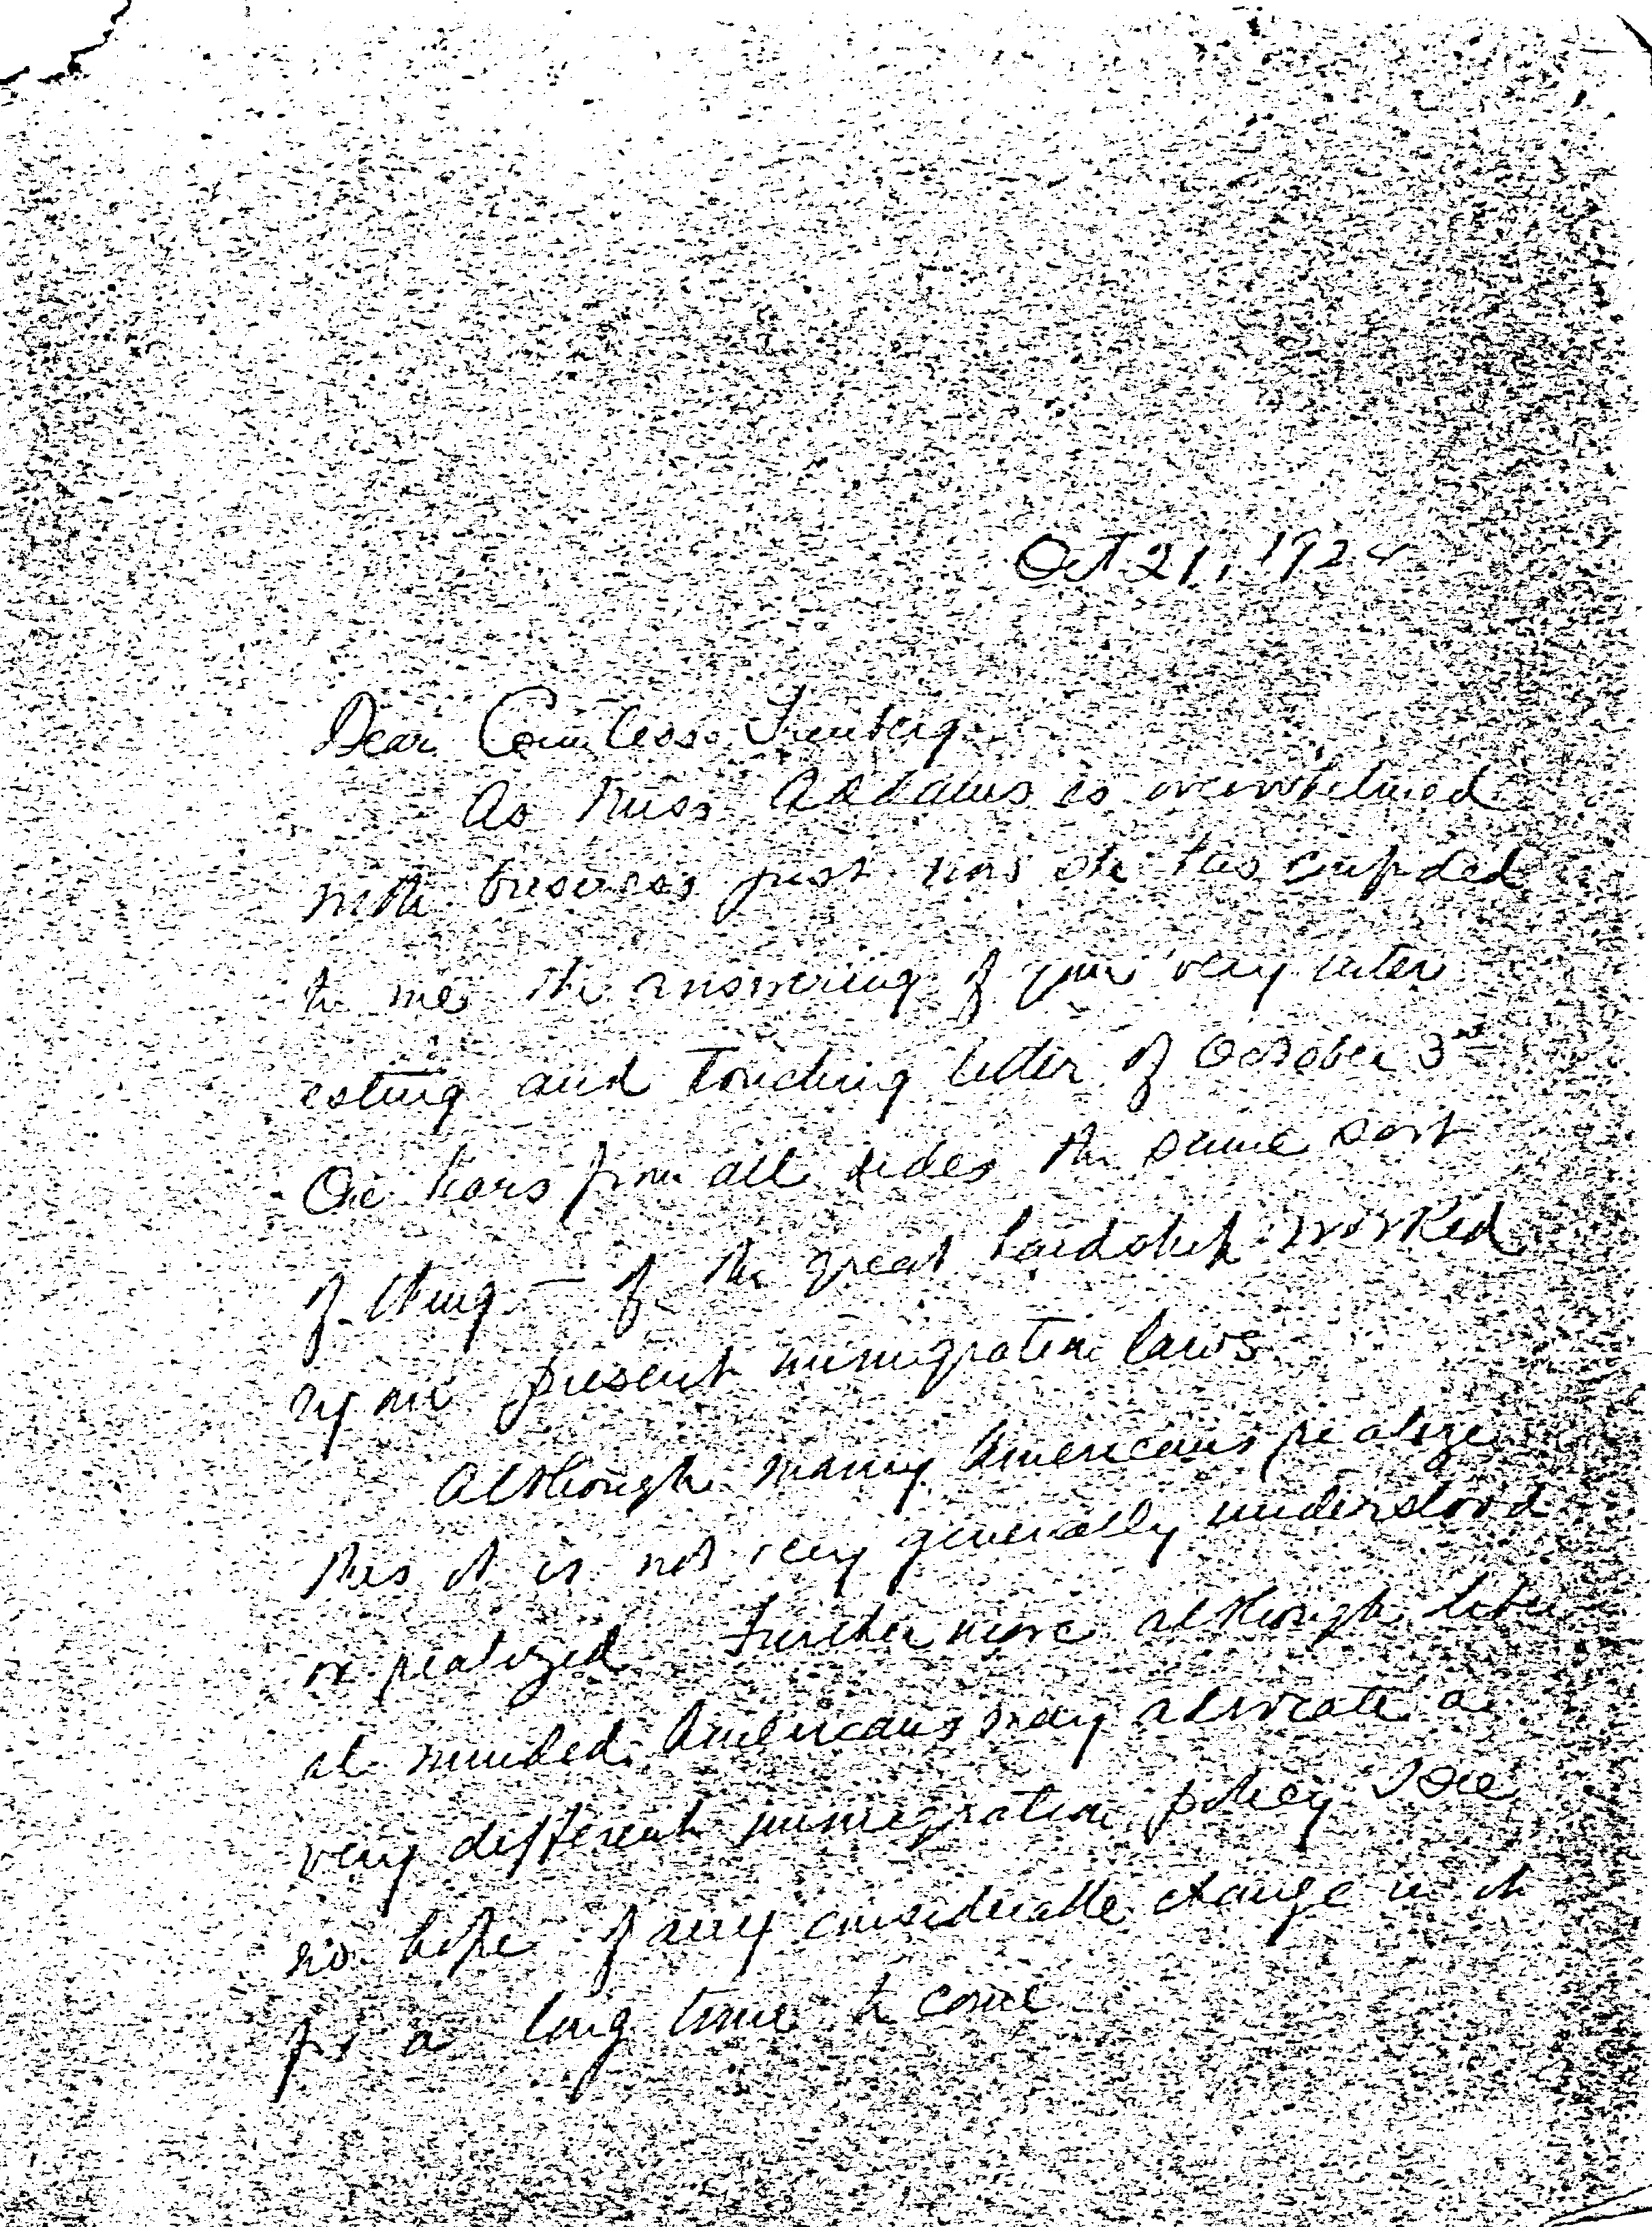 Oct 21, 1924
Dear Countess
As Miss Addams is overwhelmed
with business just now she has confided
to me the answering of your very inter
esting and touching letter of October 3rd
One hears from all sides the same sort
of thing — of the great hardship worked
by our present immigration laws
Although many Americans realize
this it is not very generally understood
or realized Furthermore although liber
al minded Americans may advocate a
very different immigration policy I see
no hope of any considerable change in it
for a long time to come